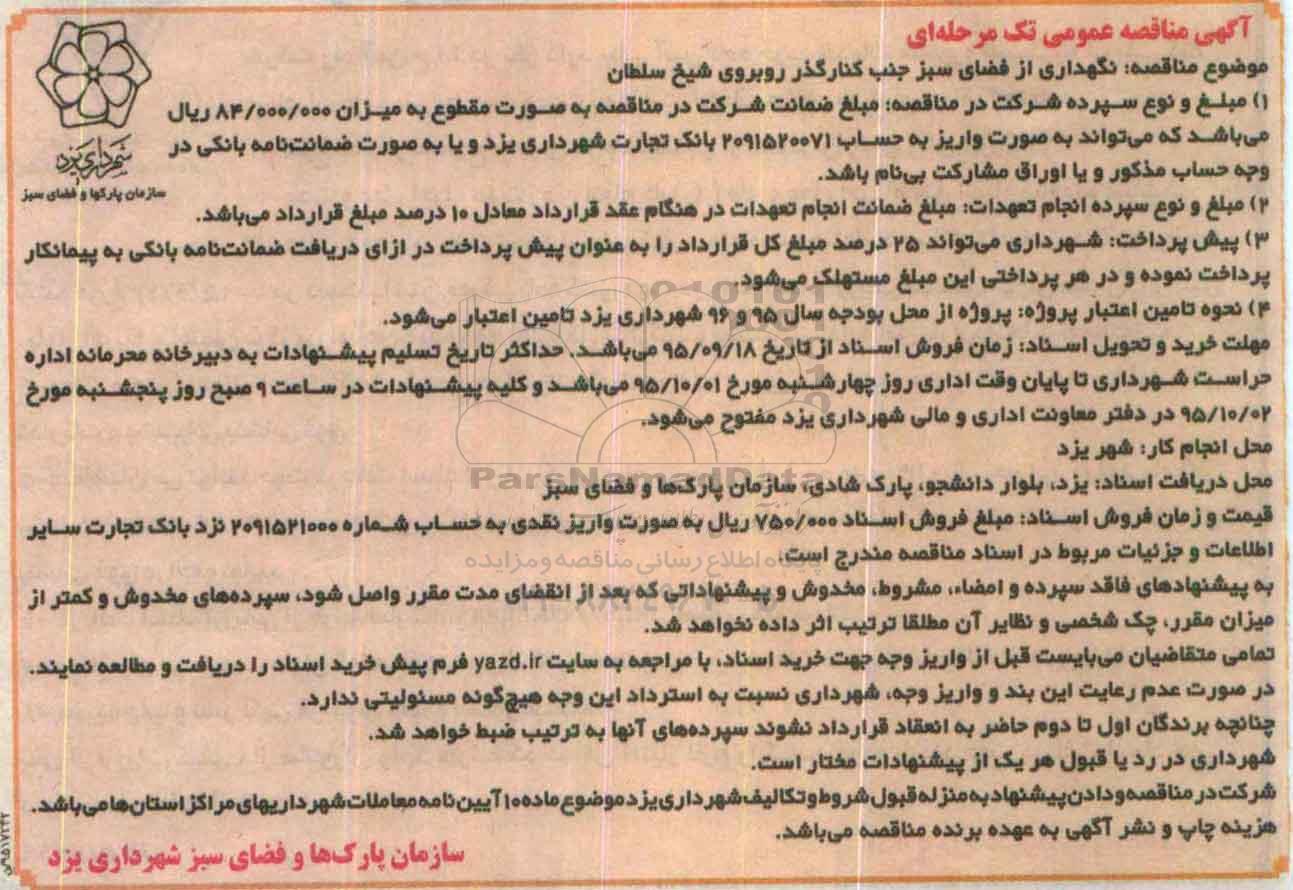 آگهی مناقصه عمومی تک مرحله‌ای
موضوع مناقصه: نگهداری از فضای سبز جنب کنارگذر روبروی شیخ سلطان
۱) مبلغ و نوع سپرده شرکت در مناقصه: مبلغ ضمانت شرکت در مناقصه به صورت مقطوع به میزان ۸۴/۰۰۰/۰۰۰ ریال
می‌باشد که می‌تواند به صورت واریز به حساب ۲۰۹۱۵۲۰۰۷۱ بانک تجارت شهرداری یزد و یا به صورت ضمانت‌نامه بانکی در
وجه حساب مذکور و یا اوراق مشارکت بی‌نام باشد.
شهرداری یزد
سازمان پارکها و فضای سبز
۲) مبلغ و نوع سپرده انجام تعهدات: مبلغ ضمانت انجام تعهدات در هنگام عقد قرارداد معادل ۱۰ درصد مبلغ قرارداد می‌باشد.
۳) پیش پرداخت: شهرداری می‌تواند ۲۵ درصد مبلغ کل قرارداد را به عنوان پیش پرداخت در ازای دریافت ضمانت‌نامه بانکی به پیمانکار
پرداخت نموده و در هر پرداختی این مبلغ مستهلک می‌شود.
۴) نحوه تامین اعتبار پروژه: پروژه از محل بودجه سال ۹۵ و ۹۶ شهرداری یزد تامین اعتبار می‌شود.
مهلت خرید و تحویل اسناد: زمان فروش اسناد از تاریخ ۹۵/۰۹/۱۸ می‌باشد. حداکثر تاریخ تسلیم پیشنهادات به دبیرخانه محرمانه اداره
حراست شهرداری تا پایان وقت اداری روز چهارشنبه مورخ ۹۵/۱۰/۰۱ می‌باشد و کلیه پیشنهادات در ساعت ۹ صبح روز پنجشنبه مورخ
۹۵/۱۰/۰۲ در دفتر معاونت اداری و مالی شهرداری یزد مفتوح می‌شود.
محل انجام کار: شهر یزد
محل دریافت اسناد: یزد، بلوار دانشجو، پارک شادی، سازمان پارک‌ها و فضای سبز
ParsNamadData
قیمت و زمان فروش اسناد: مبلغ فروش اسناد ۷۵۰/۰۰۰ ریال به صورت واریز نقدی به حساب شماره ۲۰۹۱۵۲۱۰۰۰ نزد بانک تجارت سایر
اطلاعات و جزئیات مربوط در اسناد مناقصه مندرج است.
پایگاه اطلاع رسانی مناقصه و مزایده
به پیشنهادهای فاقد سپرده و امضاء، مشروط، مخدوش و پیشنهاداتی که بعد از انقضای مدت مقرر واصل شود، سپرده‌های مخدوش و کمتر از
میزان مقرر، چک شخصی و نظایر آن مطلقا ترتیب اثر داده نخواهد شد.
تمامی متقاضیان می‌بایست قبل از واریز وجه جهت خرید اسناد، با مراجعه به سایت yazd.ir فرم پیش خرید اسناد را دریافت و مطالعه نمایند.
در صورت عدم رعایت این بند و واریز وجه، شهرداری نسبت به استرداد این وجه هیچ‌گونه مسئولیتی ندارد.
چنانچه برندگان اول تا دوم حاضر به انعقاد قرارداد نشوند سپرده‌های آنها به ترتیب ضبط خواهد شد.
شهرداری در رد یا قبول هر یک از پیشنهادات مختار است.
شرکت در مناقصه و دادن پیشنهاد به منزله قبول شروط و تکالیف شهرداری یزد موضوع ماده ۱۰ آیین نامه معاملات شهرداریهای مراکز استان‌ها می‌باشد.
هزینه چاپ و نشر آگهی به عهده برنده مناقصه می‌باشد.
سازمان پارک‌ها و فضای سبز شهرداری یزد